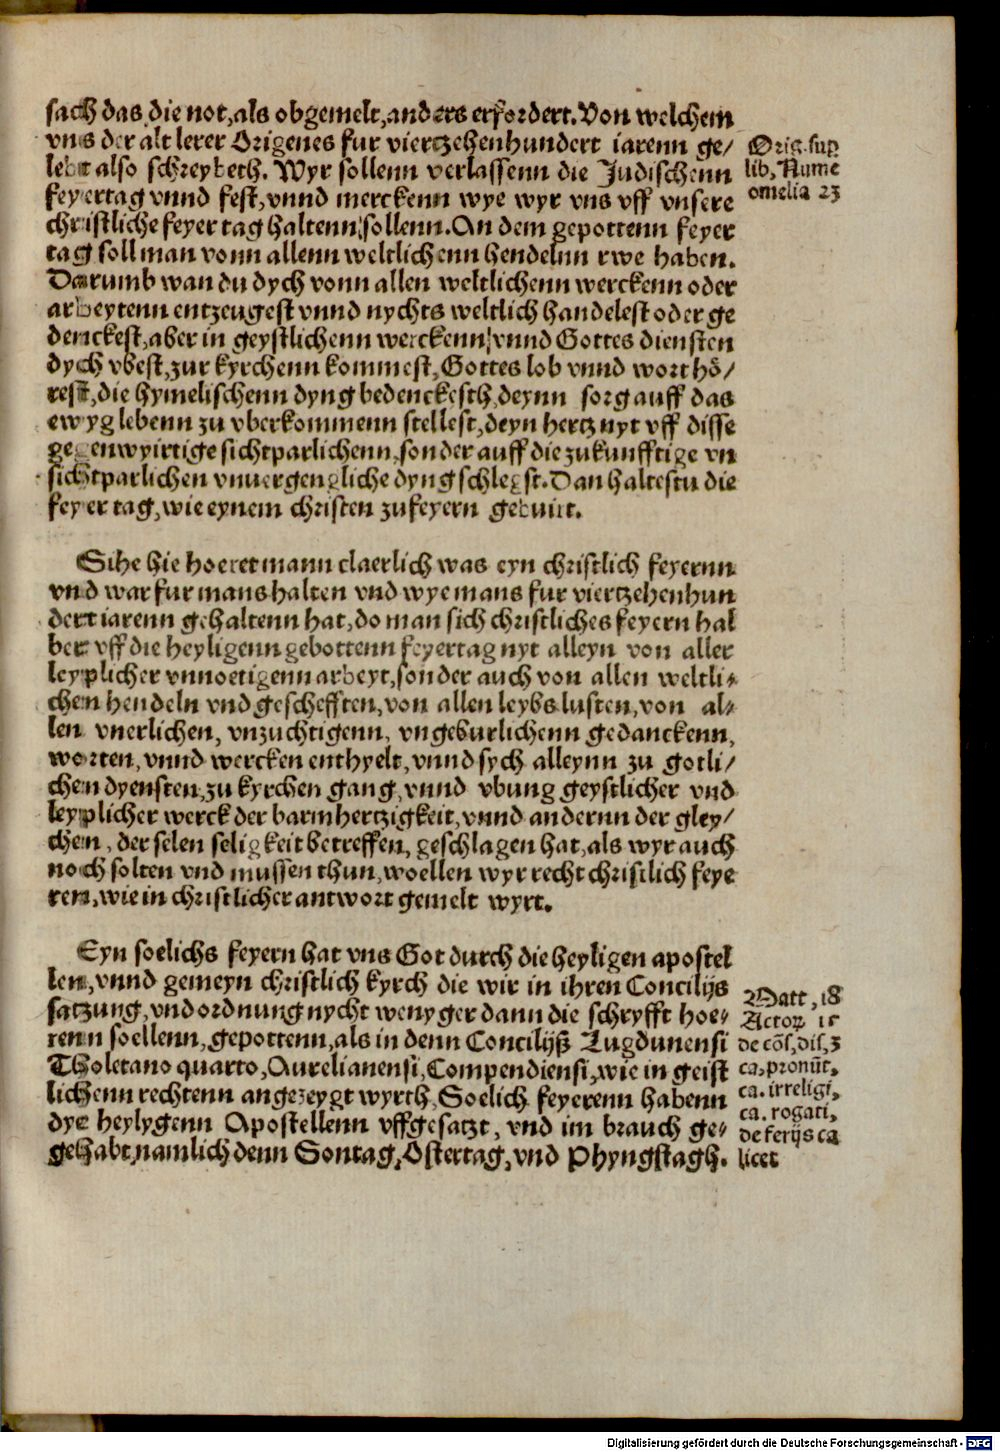 sach das die not, als obgemelt, anders erfordert. Von welchem
vns der alt lerer Origenes fur viertzehenhundert iarenn ge/
lebt also schreybeth. Wyr sollenn verlassenn die Judischenn
feyertag vnnd fest, vnnd merckenn wye wyr vns vff vnsere
christliche feyer tag haltenn sollenn. An dem gepottenn feyer
tag soll man vonn allenn weltlichenn hendelnn rwe haben.
Darumb wan du dych vonn allen weltlichenn werckenn oder
arbeytenn entzeugest vnnd nychts weltlich handelest oder ge
denckest, aber in geystlichenn werckenn, vnnd Gottes diensten
dych vbest, zur kyrchenn kommest, Gottes lob vnnd wort hö/
rest, die hymelischenn dyng bedenckesth, deynn sorg auff das
ewyg lebenn zu vberkommenn stellest, deyn hertz nyt vff disse
gegenwyirtige sichtparlichenn, sonder auff die zukunfftige vn
sichtparlichen vnuergengliche dyng schlegst. Dan haltestu die
feyer tag, wie eynem christen zufeyern geburt.
Sihe hie hoeret mann claerlich was eyn christlich feyernn
vnd war fur mans halten vnd wye mans fur viertzehenhun
dert iarenn gehaltenn hat, do man sich christliches feyern hal
ber vff die heyligenn gebottenn feyertag nyt alleyn von aller
leyplicher vnnoetigenn arbeyt, sonder auch von allen weltli-
chen hendeln vnd geschefften, von allen leybs lusten, von al-
len vnerlichen, vnzuchtigenn, vngeburlichenn gedanckenn,
worten, vnnd wercken enthyelt, vnnd sych alleynn zu gotli/
chen dyensten, zu kyrchen gang, vnnd vbung geystlicher vnd
leyplicher werck der barmhertzigkeit, vnnd andernn der gley/
chen, der selen seligkeit betreffen, geschlagen hat, als wyr auch
noch solten vnd mussen thun, woellen wyr recht christlich feye
ren, wie in christlicher antwort gemelt wyrt.
Eyn soelichs feyern hat vns Got durch die heyligen apostel
len, vnnd gemeyn christlich kyrch die wir in ihren Concilijs
satzung, vnd ordnung nycht wenyger dann die schryfft hoe-
renn soellenn, gepottenn, als in denn Concilijß Lugdunensi
Tholetano quarto, Aurelianensi, Compendiensi, wie in geist
lichenn rechtenn angezeygt wyrth, Soelich feyerenn habenn
dye heylygenn Apostellenn vffgesatzt, vnd im brauch ge-
gehabt, namlich denn Sontag, Ostertag, vnd Phyngstagh.
Orig. sup
lib, Nume
omelia 23
Matt, 18
Actor 15
de cõs, dis, 3
ca. pronũt,
ca. irreligi,
ca. rogati,
de ferijs ca
licet
Digitalisierung gefördert durch die Deutsche Forschungsgemeinschaft - DFG